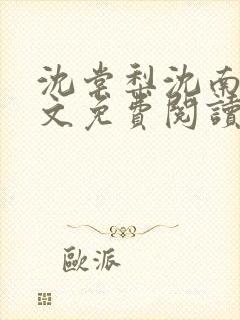 沈棠梨沈南
文免費閱讀
歐派